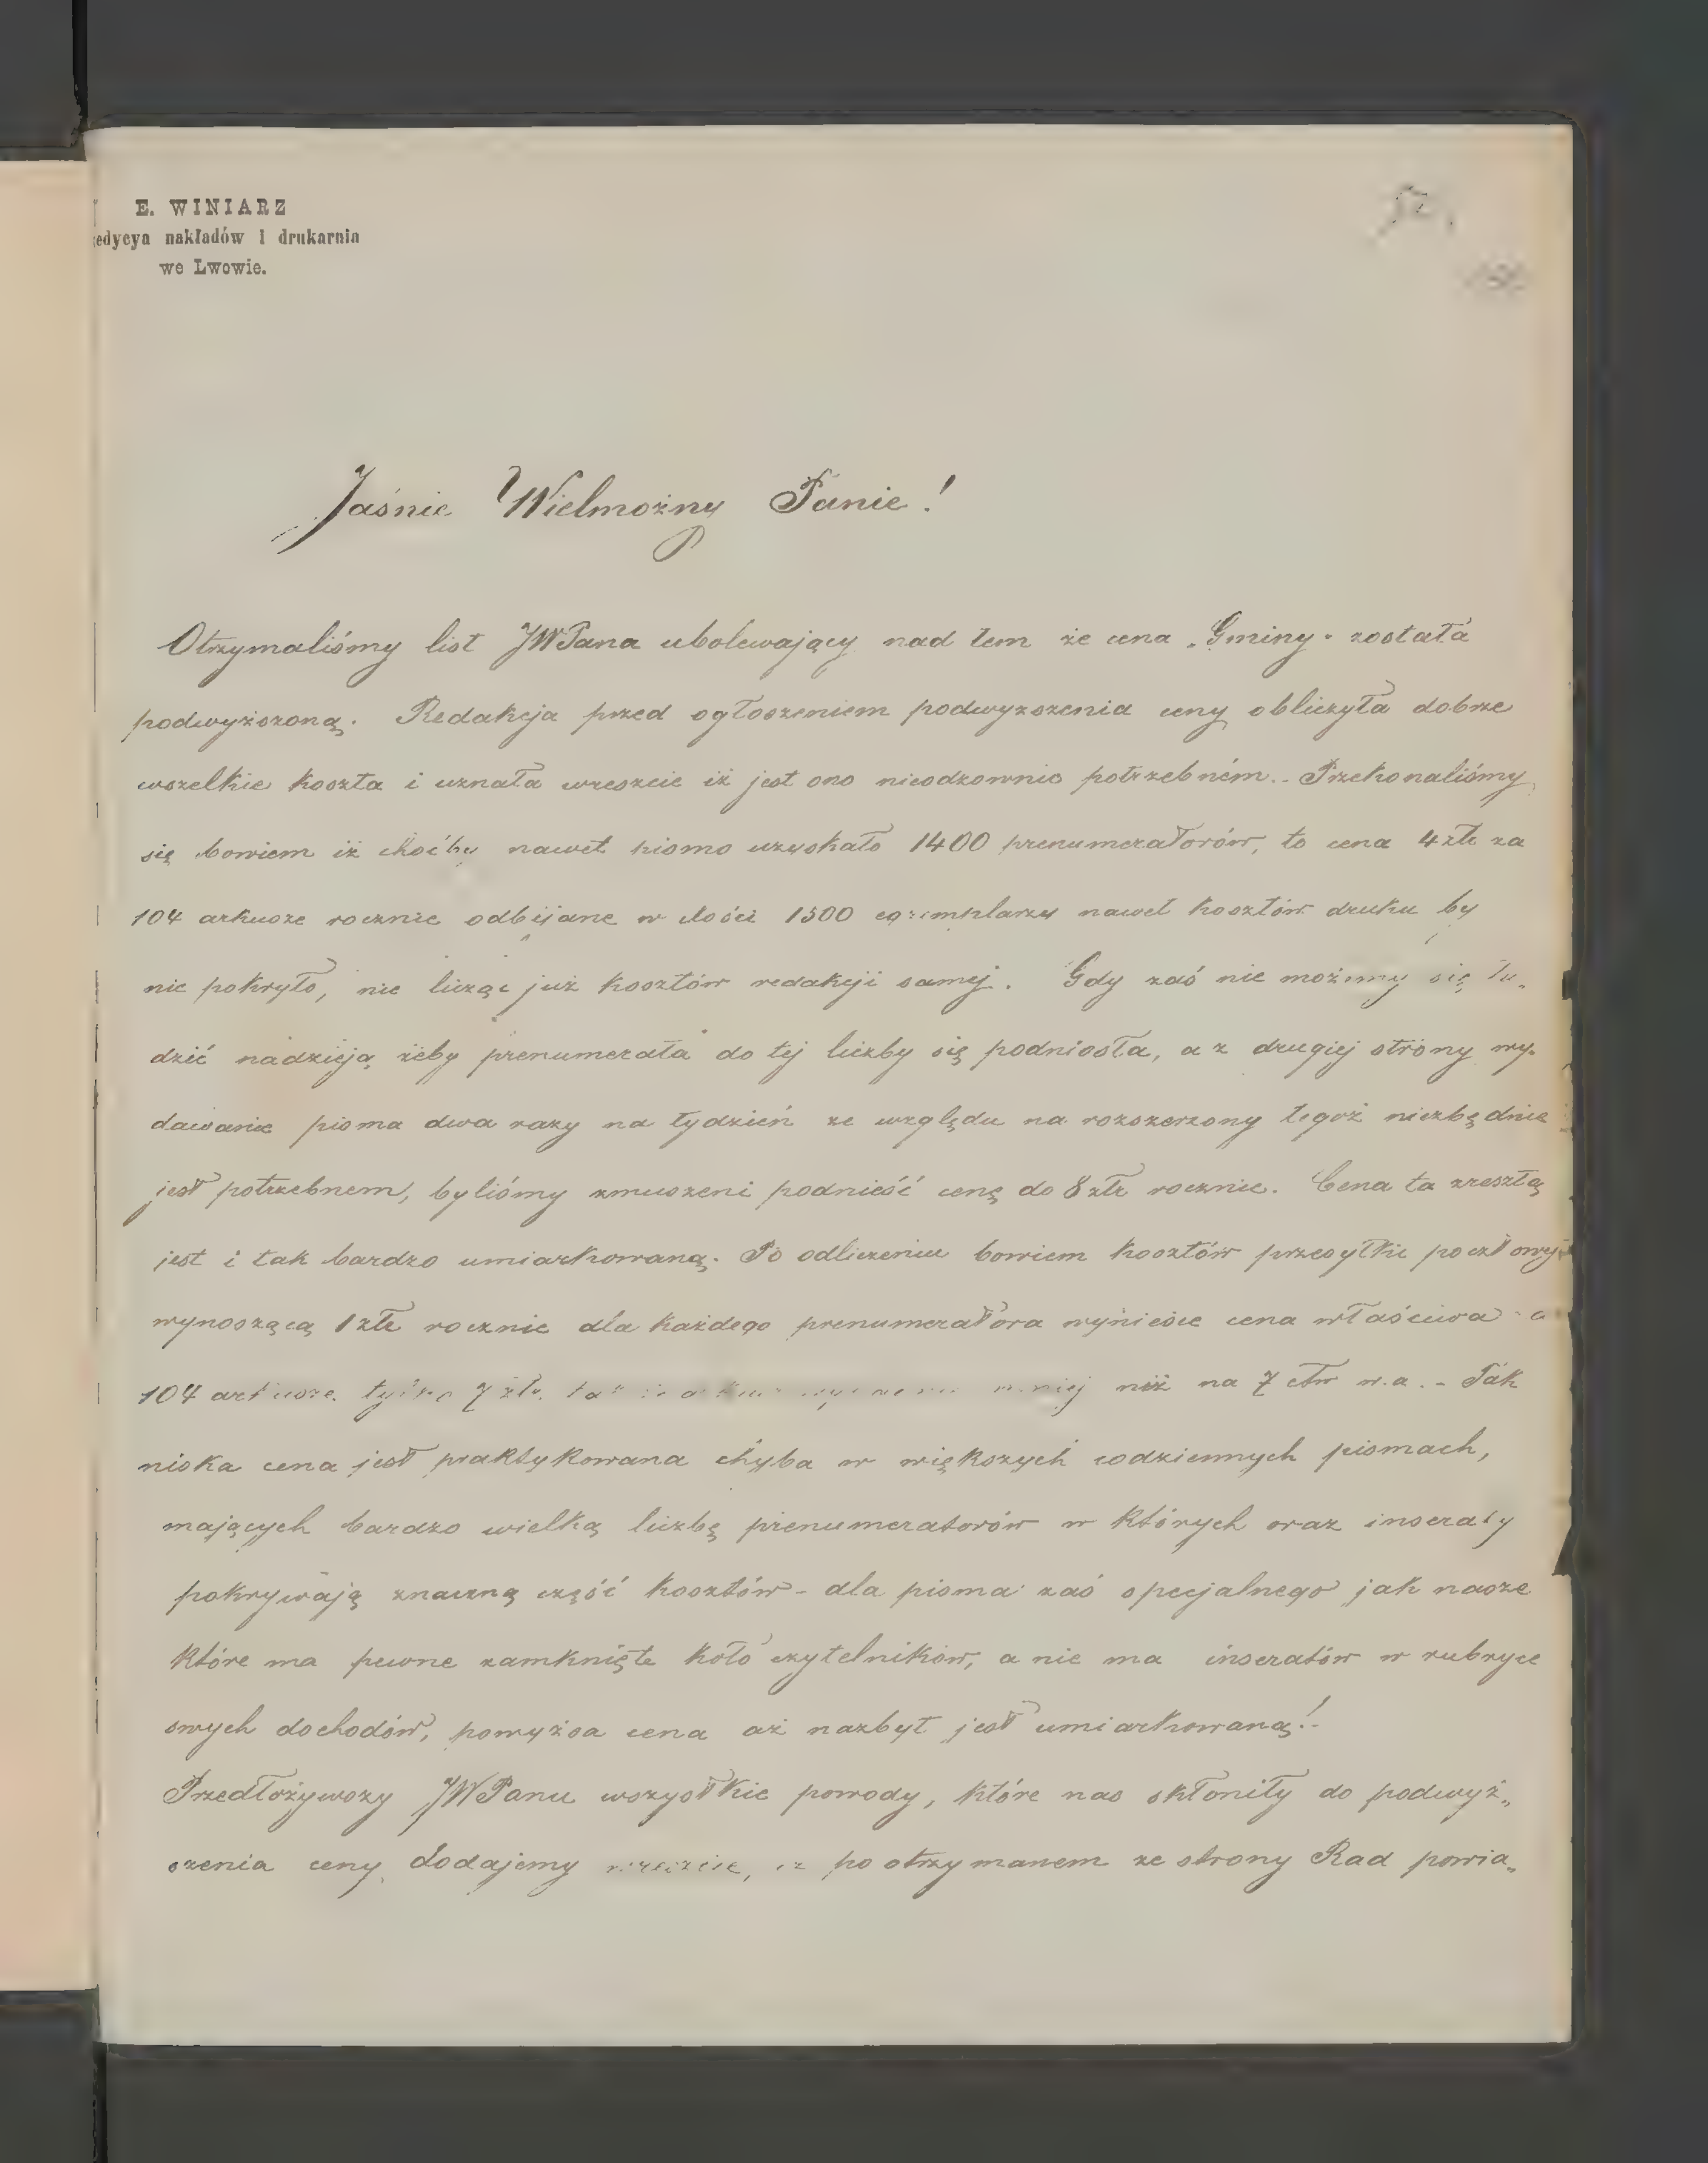 E. WINIARZ
edycya nakładów i drukarnia
we Lwowie.
52.
Jaśnie Wielmożny Panie!
Otrzymaliśmy list JWPana ubolewający nad tem że cena „Gminy" została
podwyższoną. Redakcja przed ogłoszeniem podwyższenia ceny obliczyła dobrze
wszelkie koszta i uznała wreszcie iż jest ono nieodzownie potrzebném. - Przekonaliśmy
się bowiem iż choćby nawet pismo uzyskało 1400 prenumeratorów, to cena 4 złr za
104 arkusze rocznie odbijane w ilości 1500 egzemplarzy nawet kosztów druku by
nie pokryło, nie licząc już kosztów redakcji samej. Gdy zaś nie możemy się łu„
dzić nadzieją żeby prenumerata do tej liczby się podniosła, a z drugiej strony wy-
dawanie pisma dwa razy na tydzień ze względu na rozszerzony tegoż niezbędnie
jest potrzebnem, byliśmy zmuszeni podnieść cenę do 8 złr rocznie. Cena ta zresztą
jest i tak bardzo umiarkowaną. Po odliczeniu bowiem kosztów przesyłki pocztowej
wynoszącą 1 złr rocznie dla każdego prenumeratora wyniesie cena właściwa
104 arkusze tylko 7 złr. mniej niż na 7 ctw w.a. - Tak
niska cena jest praktykowana chyba w większych codziennych pismach,
mających bardzo wielką liczbę prenumeratorów w których oraz inseraty
pokrywają znaczną część kosztów - dla pisma zaś specjalnego jak nasze
które ma pewne zamknięte koło czytelników, a nie ma inseratów w rubryce
swych dochodów, powyższa cena aż nazbyt jest umiarkowaną! -
Przedłożywszy JWPanu wszystkie powody, które nas skłoniły do podwyż„
szenia ceny, dodajemy wreszcie, iż po otrzymanem ze strony Rad powia„